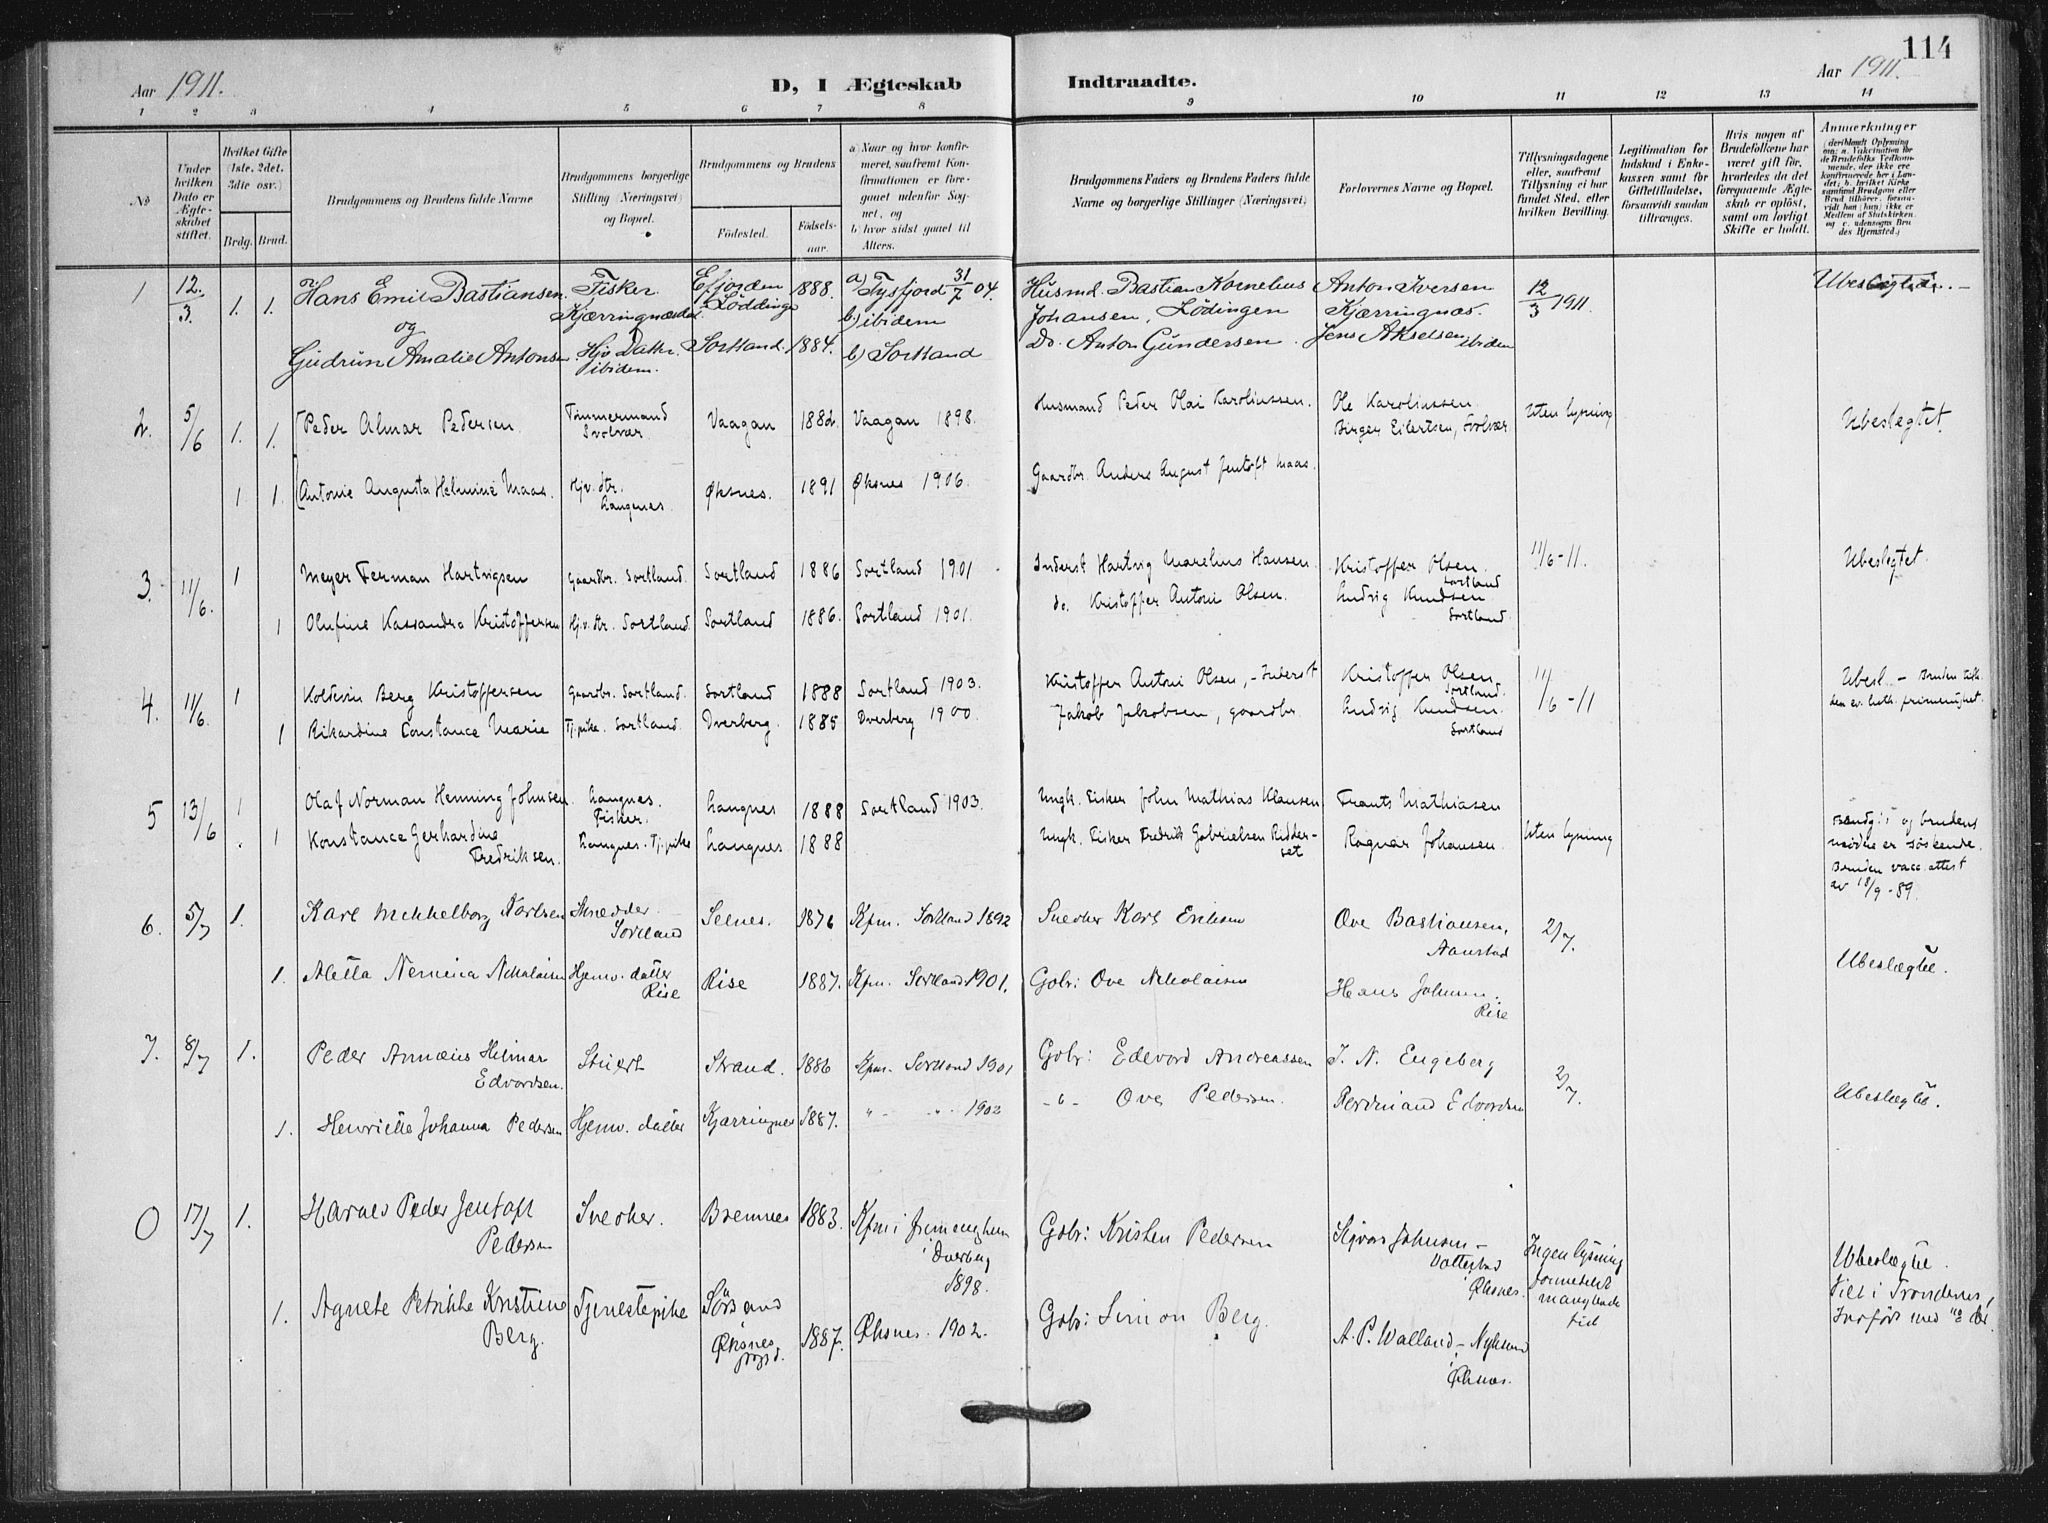 114
Aar 1911.
D, I Ægteskab Indtraadte.
Aar 1911.
1 2 3 4 5 6 7 8 9 10 11 12 13 14
No
Under hvilken Dato er Ægteskabet stiftet.
Hvilket Gifte (1ste, 2det, 3die osv.)
Brdg. Brud.
Brudgommens og Brudens fulde Navne
Brudgommens borgerlige Stilling (Næringsvei) og Bopæl.
Brudgommens og Brudens
Födested. Födsels-aar.
a) Naar og hvor konfirmeret, saafremt Konfirmationen er foregaaet udenfor Sognet, og
b) hvor sidst gaaet til Alters.
Brudgommens Faders og Brudens Faders fulde Navne og borgerlige Stillinger (Næringsvei)
Forlovernes Navne og Bopæl.
Tillysningsdagene eller, saafremt Tillysning ei har fundet Sted, efter hvilken Bevilling.
Legitimation for Indskud i Enkekassen samt for Giftetilladelse, forsaavidt saadan tiltrænges.
Hvis nogen af Brudefolkene har været gift før, hvorledes da det foregaaende Ægteskab er opløst, samt om lovligt Skifte er holdt.
Anmerkninger
1 12/3. 1. 1. Hans Emil Bastiansen Fisker Kjærringnesdal Efjorden i Löddinge 1888. a) Tysfjord 31/7 04. b) ibidem Husmd. Bastian Kornelius Johansen, Lödingen Anton Iversen Kjærringnæs. 12/3 1911. Ubeslægtede.
og
Gudrun Amalie Antonsen Hjv. Datter ibidem. Sortland. 1884. b) Sortland Do. Anton Gundersen. Jens Akselsen ibidem
2. 5/6 1. 1. Peder Almar Pedersen. Tømmermand Svolvær Vaagan 1882. Vaagan 1898. Husmand Peder Olai Karoliussen. Ole Karoliussen Birger Eilertsen, Svolvær Uten lysning Ubeslegtet.
1 1. Antonie Augusta Helmine Maas. Hjv. dtr. Langenes. Øksnes. 1891 Øksnes 1906. Gaardbr. Anders August Jentoft Maas.
3. 11/6. 1 Meyer Ferman Hartvigsen Gaardbr. Sortland. Sortland 1886 Sortland 1901 Inderst Hartvig Marelius Hansen Kristoffer Olsen. Sortland 11/6-11. Ubeslegtet.
1 Olufine Kassandra Kristoffersen Hjv. dtr. Sortland. Sortland 1886. Sortland 1901. do. Kristoffer Antoni Olsen. Ludvig Knudsen Sortland.
4. 11/6. 1 Koldevin Berg Kristoffersen Gaardbr. Sortland. Sortland 1888 Sortland 1903. Kristoffer Antoni Olsen, - Inderst Kristoffer Olsen Sortland. 11/6-11 Ubesl. - Bruden tilh. den ev. luth. frimenighet.
1 Rikardine Constance Marie Tj. pike. Sortland. Dverberg. 1885 Dverberg 1900. Jakob Jakobsen, gaardbr. Ludvig Knudsen. Sortland
5 13/6 1 Olaf Norman Henning Johnsen. Langnes. Fisker. Langnes 1888 Sortland 1903. Ungk. Fisker John Mathias Klausen Frants Mathiasen Brudg.s og brudens mødre er søskende.
1 Konstance Gerhardine Fredriksen. Langnes. Tj. pike Langnes 1888 Ungk. Fisker Fredrik Gabrielsen Ridderset Ragnar Johansen. Uten lysning Bruden vacc. attest av 18/9-89.
6. 5/7 1. Karl Mekkelborg Karlsen Skredder Sortland Selnes. 1876 Kfm. Sortland 1892 Snedker Karl Eriksen Ove Bastiansen, Aanstad 2/7.
1. Aletta Nemina Nikolaisen Hjemv. datter Rise Rise 1887. Kfm. Sortland 1901. Gdbr: Ove Nikolaisen Hans Johnsen. Rise Ubeslægtet.
7. 8/7 1. Peder Annæus Hilmar Edvardsen. Stuert Strand. 1886 Kfm. Sortland 1901 Gdbr: Edevard Andreassen J. N. Engeberg 2/7. Ubeslægtet.
1. Henriette Johanna Pedersen Hjemv. datter Kjærringnes 1887. " - " - 1902 - " - Ove Pedersen. Ferdinand Edvardsen
0 17/7 1. Harnes Peder Jentoft Pedersen Snedker. Bremnes 1883. Kfm i frimenigheden i Dverberg 1898. Gdbr: Kristen Pedersen Sigvart Johnsen - Vottestad Øksnes. Ingen lysning formedelst manglende tid Ubeslægtet. Viet i Trondenes,
1. Agnete Petrikke Kristine Berg. Tjenestepike Sørsand Øksnes prgjd. 1887. Øksnes. 1902. Gdbr: Simon Berg. A. P. Walland - Nyksund Øksnes.